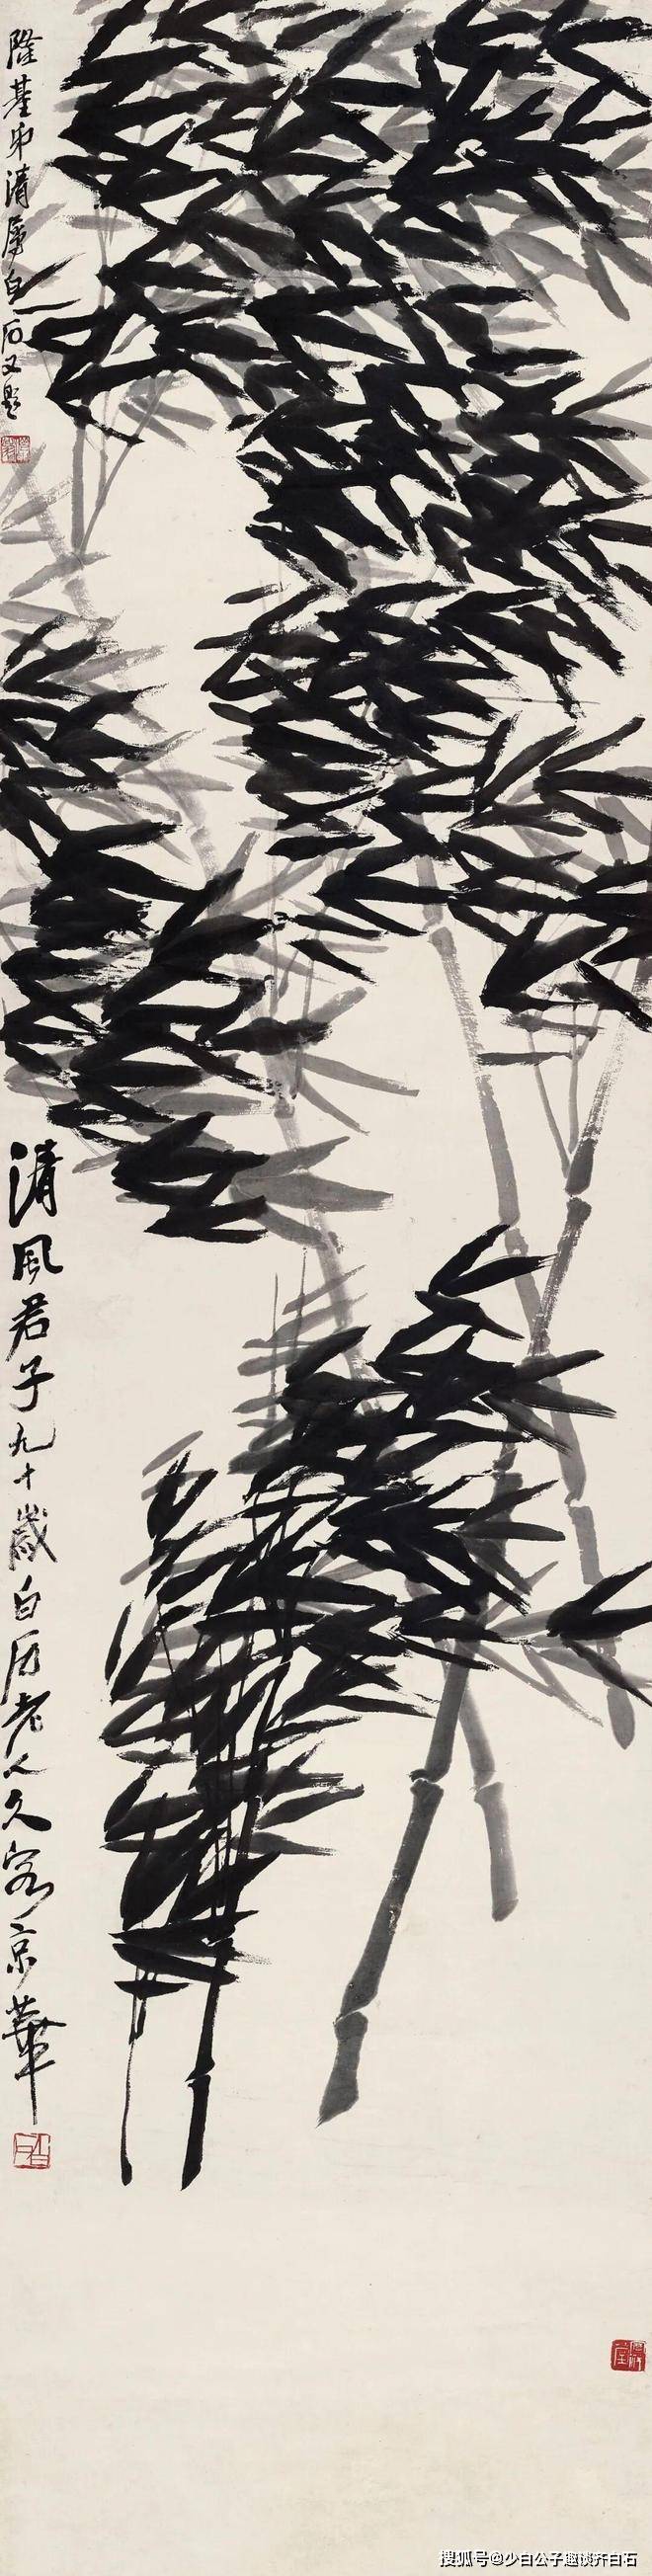 隆基弟清屬白石又題
清風君子九十歲白石老人久客京華
白石
搜狐号@少白公子趣谈齐白石